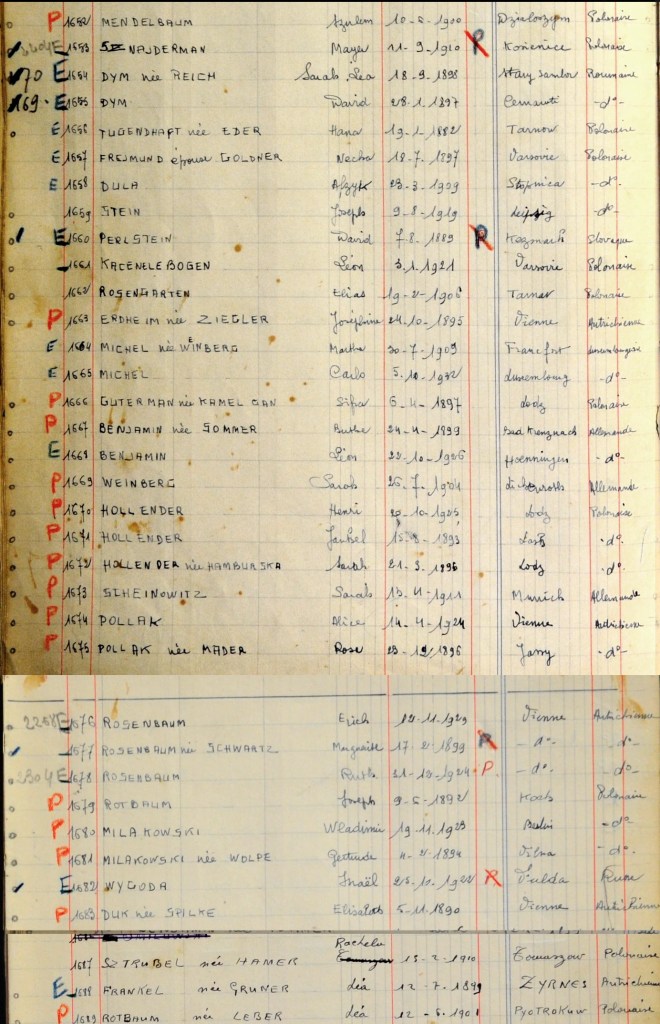 P 1652 MENDELBAUM Szulem 10-2-1900 Polonaise
E 1653 SZNAJDERMAN Mayer 11-9-1910 R Kozienice Polonaise
70 E 1654 DYM née REICH Sarah Lea 18-9-1898 Stary Sambor Roumaine
169 E 1655 DYM David 28-1-1897 Cernauti -d°-
E 1656 JUGENDHAPT née EDER Hana 19-1-1882 Tarnow Polonaise
E 1657 FREJMUND épouse GOLDNER Necha 18-7-1897 Varsovie Polonaise
E 1658 DULA 23-3-1909 Stopnica -d°-
1659 STEIN Joseph 9-8-1919 Leipzig -d°-
E 1660 PERLSTEIN David 7-8-1889 R Kezmark Slovaque
1661 KACENELEBOGEN Léon 3-1-1921 Varsovie Polonaise
1662 ROSENGARTEN Elias 19-2-1906 Tarnov Polonaise
P 1663 ERDHEIM née ZIEGLER Joséphine 24-10-1895 Vienne Autrichienne
E 1664 MICHEL née WINBERG Martha 30-7-1909 Francfort Luxembourgeoise
E 1665 MICHEL Carlo 5-10-1932 Luxembourg -d°-
P 1666 GUTERMAN née KAMELGAN Sifra 6-4-1897 Lodz Polonaise
P 1667 BENJAMIN née SOMMER 24-4-1899 Bad Kreuznach Allemande
E 1668 BENJAMIN Léon 22-10-1926 Hoenningen -d°-
P 1669 WEINBERG Sarah 26-7-1904 Allemande
P 1670 HOLLENDER Henri 20-10-1925 Lodz Polonaise
P 1671 HOLLENDER Jankel 15-8-1893 Lask -d°-
P 1672 HOLLENDER née HAMBURSKA Sarah 21-3-1896 Lodz -d°-
P 1673 SCHEINOWITZ Sarah 13-4-1911 Munich Allemande
P 1674 POLLAK Alice 14-4-1924 Vienne Autrichienne
P 1675 POLLAK née MADER Rose 23-12-1896 Jassy -d°-
2258 E 1676 ROSENBAUM Erich 12-11-1929 Vienne Autrichienne
1677 ROSENBAUM née SCHWARTZ Marguerite 17-2-1899 R -d°- -d°-
2304 E 1678 ROSENBAUM Ruth 31-12-1924 P -d°- -d°-
P 1679 ROTBAUM Joseph 9-6-1892 Kock Polonaise
P 1680 MILAKOWSKI Wladimir 19-11-1923 Berlin -d°-
P 1681 MILAKOWSKI née WOLPE Gertrude 4-2-1894 Vilna -d°-
E 1682 WYGODA Israël 25-10-1922 R Fulda Russe
P 1683 DUK née SPILKE Elisabeth 5-11-1890 Vienne Autrichienne
1687 SZTRUBEL née HAMER Rachela 15-2-1910 Tomaszow Polonaise
E 1688 FRANKEL née GRUNER Léa 12-7-1849 ZYRNES Autrichienne
P 1689 ROTBAUM née LEBER Léa 12-6-1901 PYOTROKUW Polonaise